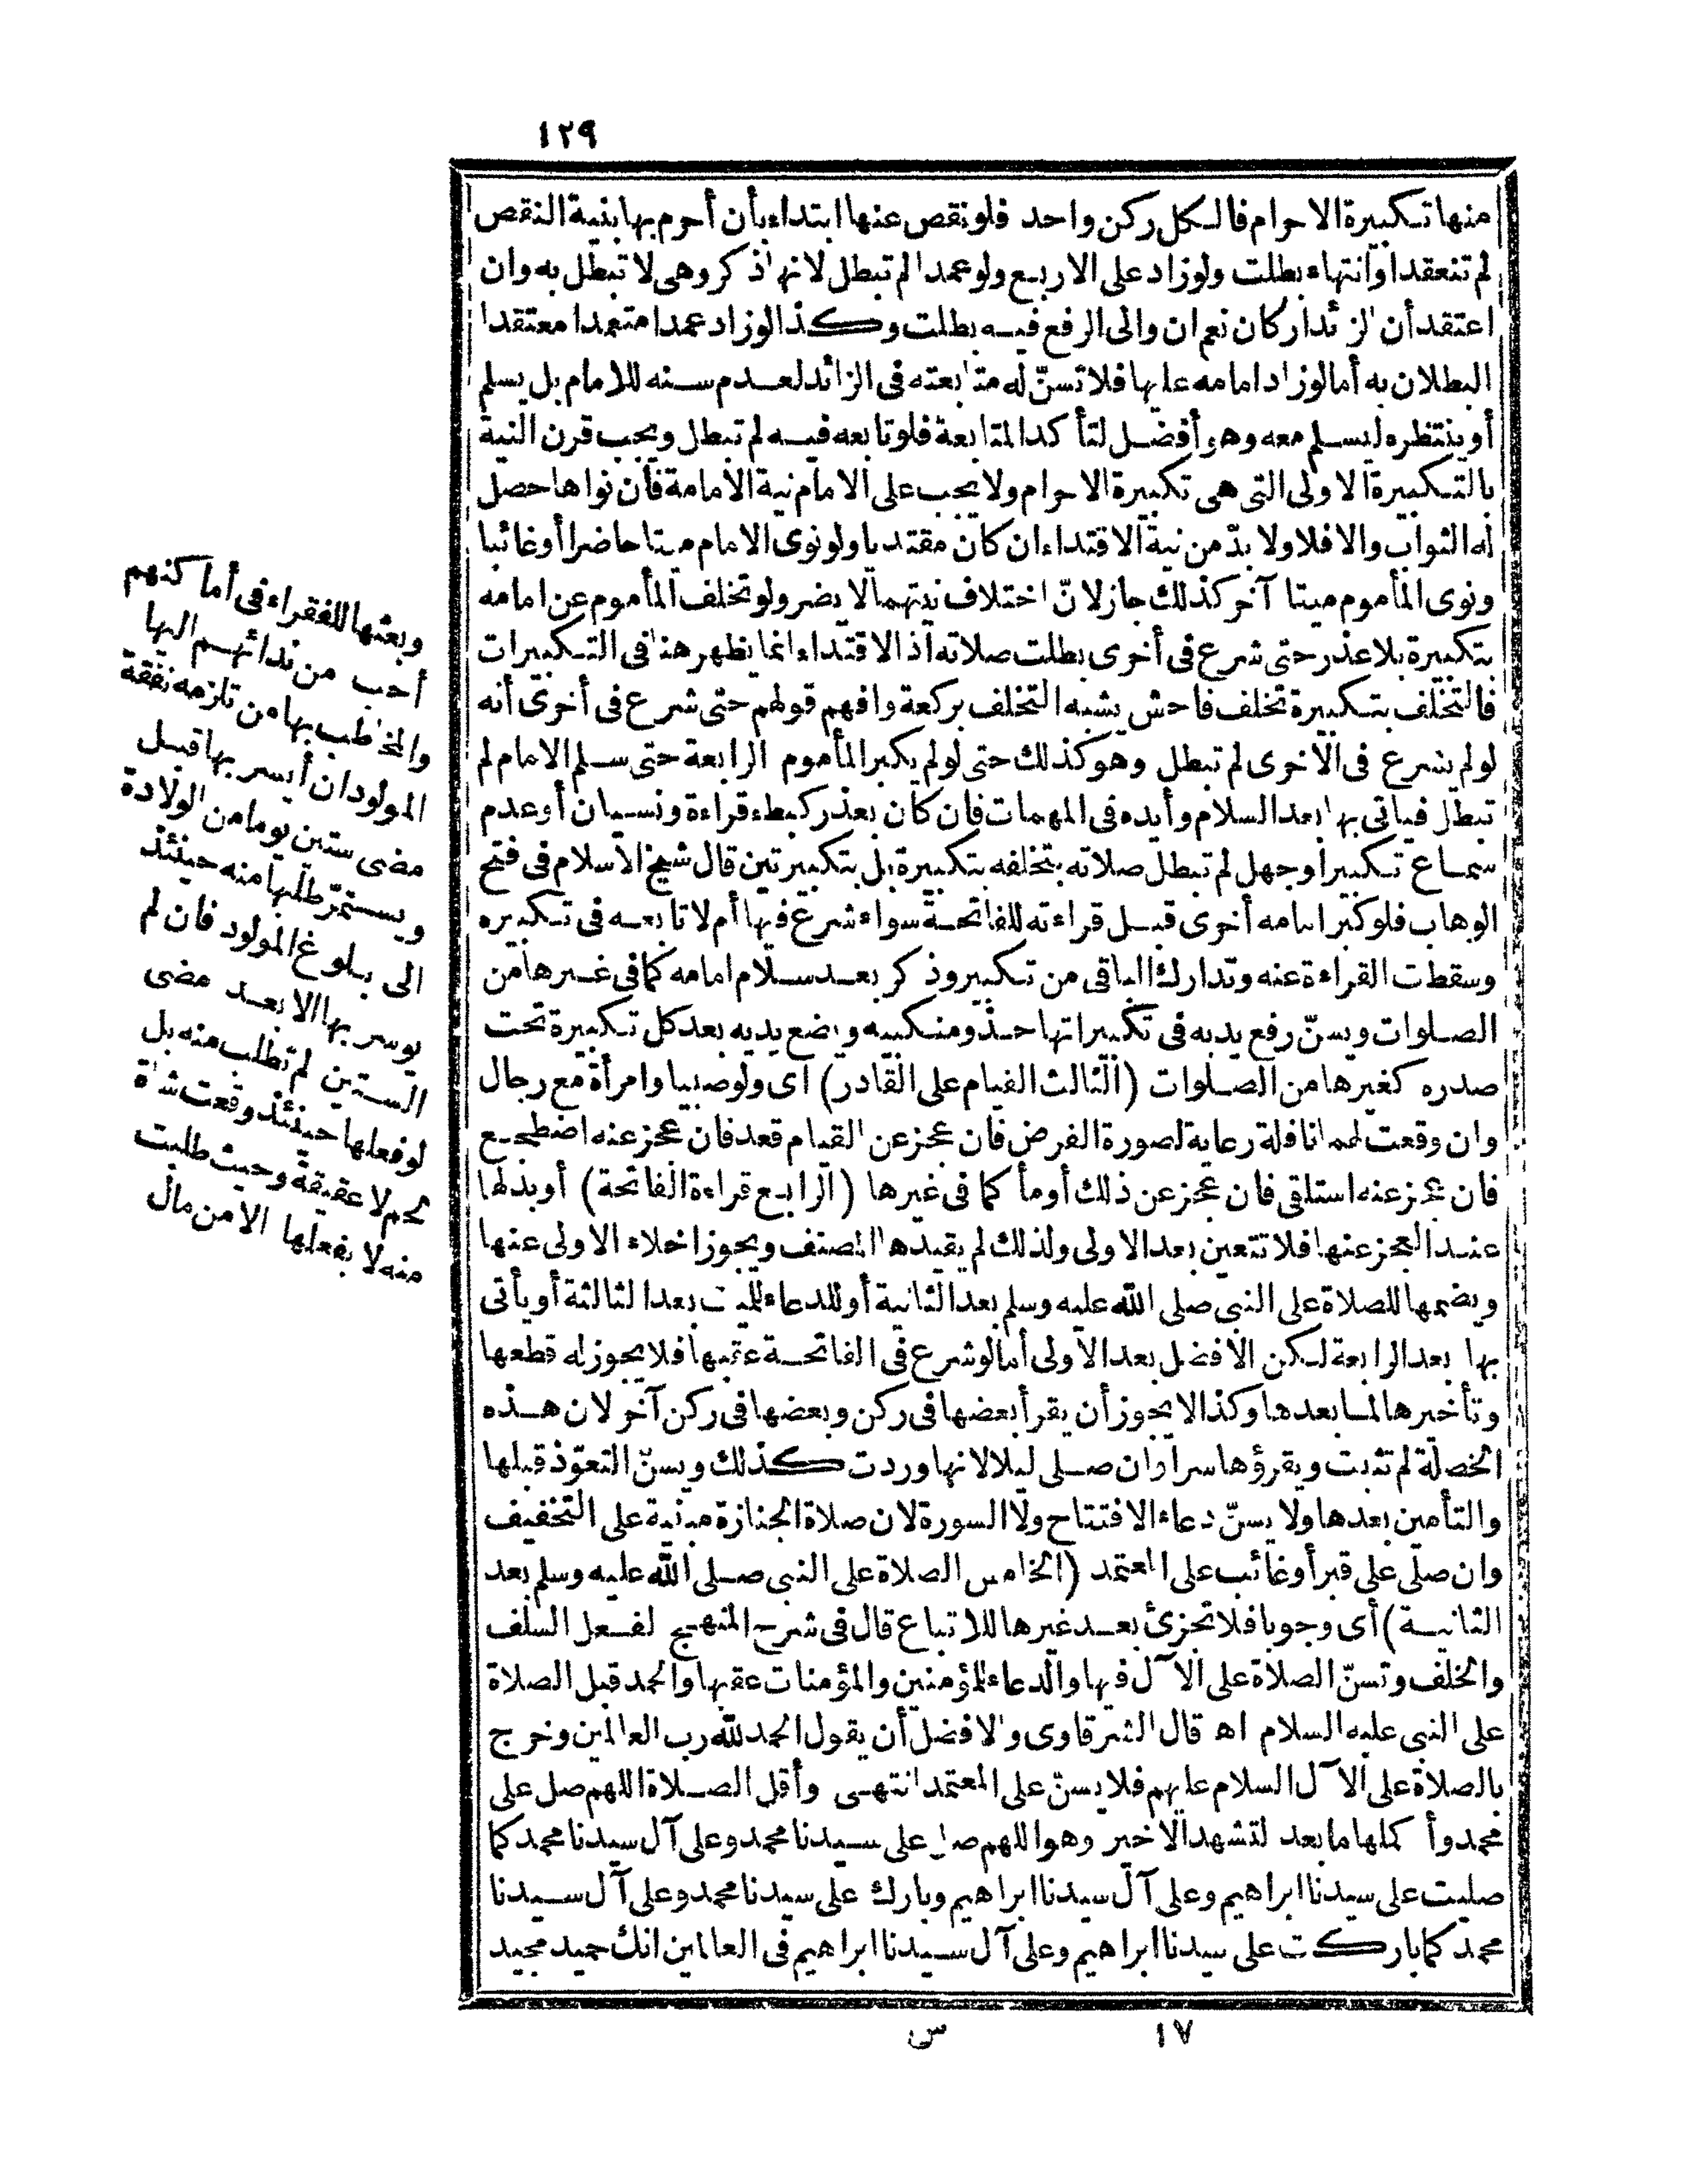 ١٢٩
منها تكبيرة الاحرام فالكل ركن واحد فلو نقص عنها ابتداء بأن أحرم بها بنية النقص
لم تنعقد أو انتهاء بطلت ولو زاد على الاربع ولو عمدا لم تبطل لانها ذكر وهى لا تبطل به وان
اعتقد أن الزائد أركان نعم ان والى الرفع فيه بطلت وكذا لو زاد عمدا متعمدا معتقدا
البطلان به أما لو زاد امامه عليها فلا تسنّ له متابعته فى الزائد لعدم سنه للامام بل يسلم
أو ينتظره ليسلم معه وهو أفضل لتأكد المتابعة فلو تابعه فيه لم تبطل ويجب قرن النية
بالتكبيرة الاولى التى هى تكبيرة الاحرام ولا يجب على الامام نية الامامة فان نواها حصل
له الثواب والا فلا ولا بدّ من نية الاقتداء ان كان مقتديا ولو نوى الامام ميتا حاضرا أو غائبا
ونوى المأموم ميتا آخر كذلك جاز لانّ اختلاف نيتهما لا يضر ولو تخلف المأموم عن امامه
بتكبيرة بلا عذر حتى شرع فى أخرى بطلت صلاته اذ الاقتداء انما يظهر هنا فى التكبيرات
فالتخلف بتكبيرة تخلف فاحش يشبه التخلف بركعة وافهم قولهم حتى شرع فى أخرى أنه
لو لم يشرع فى الأخرى لم تبطل وهو كذلك حتى لو لم يكبر المأموم الرابعة حتى سلم الامام لم
تبطل فيأتى بها بعد السلام وأيده فى المهمات فان كان بعذر كبطء قراءة ونسيان أو عدم
سماع تكبير أو جهل لم تبطل صلاته بتخلفه بتكبيرة بل بتكبيرتين قال شيخ الاسلام فى فتح
الوهاب فلو كبر امامه أخرى قبل قراءته للفاتحة سواء شرع فيها أم لا تابعه فى تكبيره
وسقطت القراءة عنه وتدارك الباقى من تكبير وذكر بعد سلام امامه كما فى غيرها من
الصلوات ويسنّ رفع يديه فى تكبيراتها حذو منكبيه ويضع يديه بعد كل تكبيرة تحت
صدره كغيرها من الصلوات (الثالث القيام على القادر) اى ولو صبيا وامرأة مع رجال
وان وقعت لهما نافلة رعاية لصورة الفرض فان عجز عن القيام قعد فان عجز عنه اضطجع
فان عجز عنه استلقى فان عجز عن ذلك أومأ كما فى غيرها (الرابع قراءة الفاتحة) أو بدلها
عند العجز عنها فلا تتعين بعد الاولى ولذلك لم يقيدها المصنف ويجوز اخلاء الاولى عنها
ويضمها للصلاة على النبى صلى الله عليه وسلم بعد الثانية أو للدعاء للميت بعد الثالثة أو يأتى
بها بعد الرابعة لكن الأفضل بعد الاولى أما لو شرع فى الفاتحة عقبها فلا يجوز له قطعها
وتأخيرها لما بعدها وكذا لا يجوز أن يقرأ بعضها فى ركن وبعضها فى ركن آخر لان هذه
الخصلة لم تثبت ويقرؤها سرا وان صلى ليلا لانها وردت كذلك ويسنّ التعوّذ قبلها
والتأمين بعدها ولا يسنّ دعاء الافتتاح ولا السورة لان صلاة الجنازة مبنية على التخفيف
وان صلى على قبر أو غائب على المعتمد (الخامس الصلاة على النبى صلى الله عليه وسلم بعد
الثانية) أى وجوبا فلا تجزئ بعد غيرها للاتباع قال فى شرح المنهج لفعل السلف
والخلف وتسنّ الصلاة على الآل فيها والدعاء للمؤمنين والمؤمنات عقبها والحمد قبل الصلاة
على النبى عليه السلام اهـ قال الشرقاوى والافضل أن يقول الحمد لله رب العالمين وخرج
بالصلاة على الآل السلام عليهم فلا يسنّ على المعتمد انتهى وأقل الصلاة اللهم صل على
محمد وأكملها ما بعد التشهد الاخير وهو اللهم صل على سيدنا محمد وعلى آل سيدنا محمد كما
صليت على سيدنا ابراهيم وعلى آل سيدنا ابراهيم وبارك على سيدنا محمد وعلى آل سيدنا
محمد كما باركت على سيدنا ابراهيم وعلى آل سيدنا ابراهيم فى العالمين انك حميد مجيد
وبعثها للفقراء فى أماكنهم
أحب من ندائهم اليها
والمخاطب بها من تلزمه نفقة
المولود ان أيسر بها قبل
مضى ستين يوما من الولادة
ويستمرّ طلبها منه حينئذ
الى بلوغ المولود فان لم
يوسر بها الا بعد مضى
الستين لم تطلب منه بل
لو فعلها حينئذ وقعت شاة
لحم لا عقيقة وحيث طلبت
منه لا يفعلها الا من مال
١٧ س